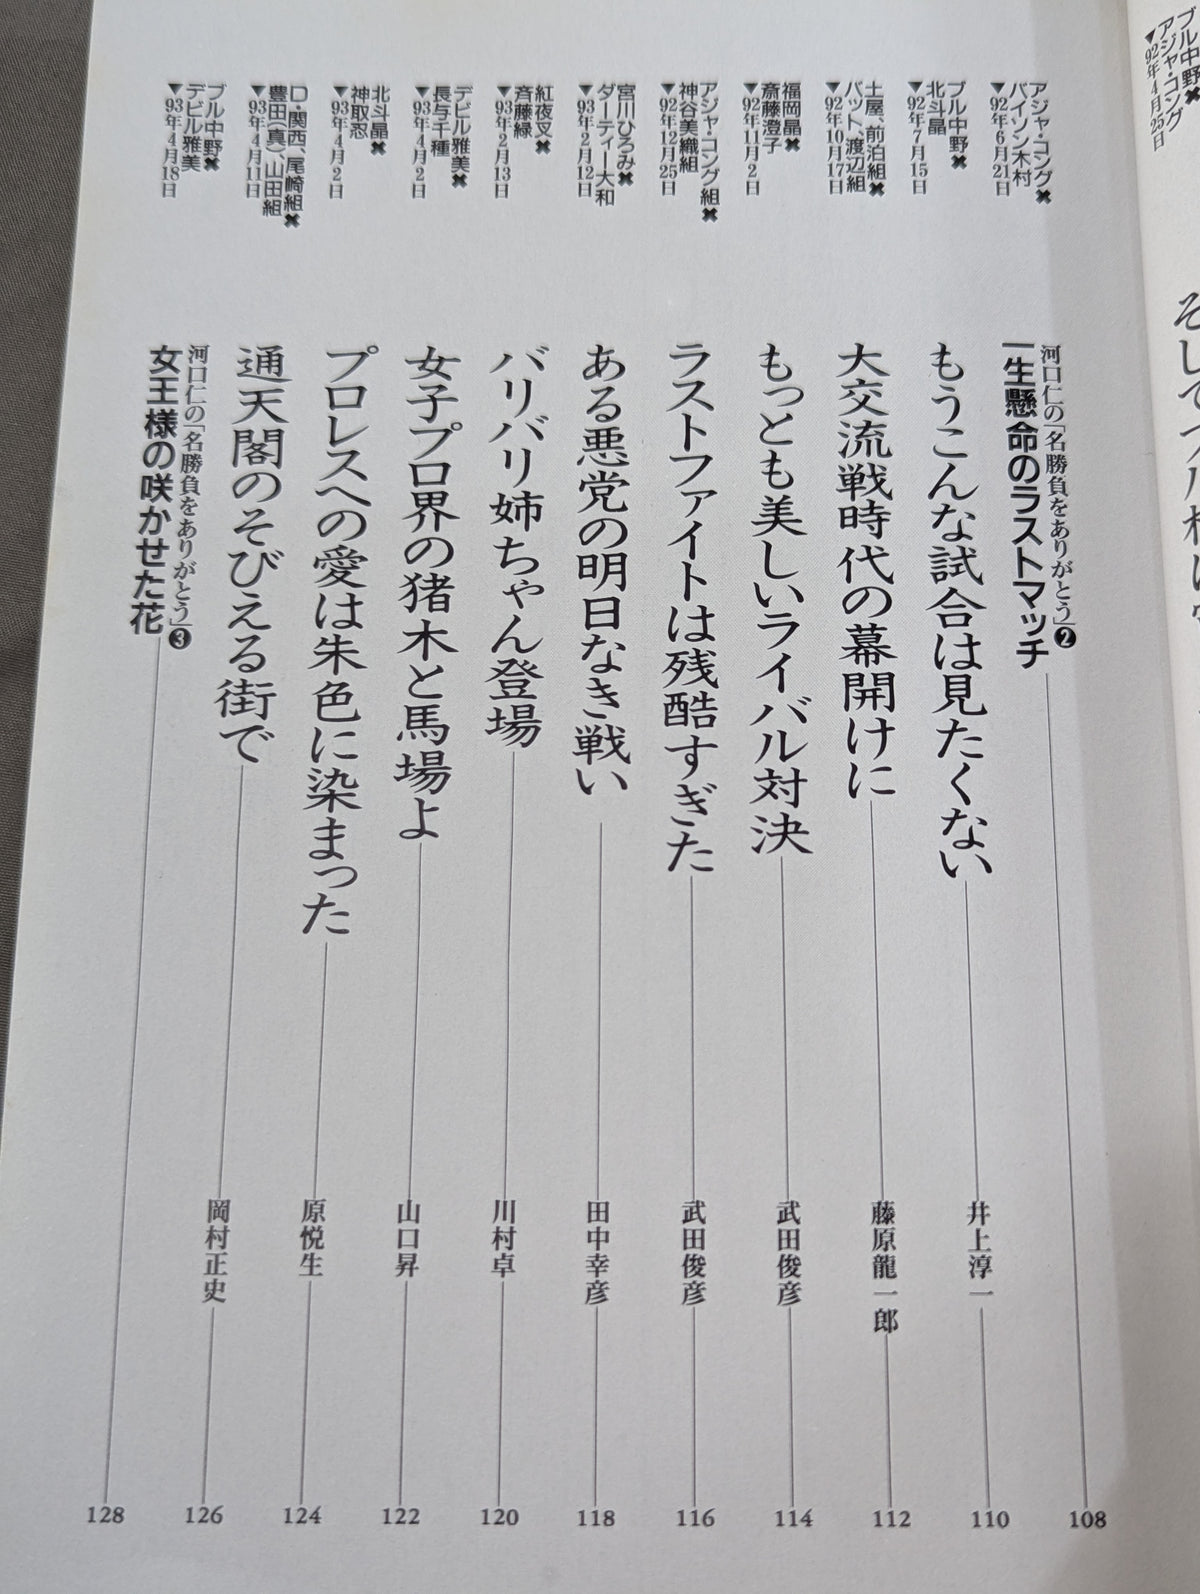 ブル中野✖
アジャ・コング
▼92年4月25日
河口仁の「名勝負をありがとう」❷
一生懸命のラストマッチ
108
アジャ・コング✖
バイソン木村
▼92年6月21日
もうこんな試合は見たくない
井上淳一
110
ブル中野✖
北斗晶
▼92年7月15日
大交流戦時代の幕開けに
藤原龍一郎
112
土屋、前泊組✖
バット、渡辺組
▼92年10月17日
もっとも美しいライバル対決
武田俊彦
114
福岡晶✖
斎藤澄子
▼92年11月2日
ラストファイトは残酷すぎた
武田俊彦
116
アジャ・コング組✖
神谷美織組
▼92年12月25日
ある悪党の明日なき戦い
田中幸彦
118
宮川ひろみ✖
ダーティー大和
▼93年2月12日
バリバリ姉ちゃん登場
川村卓
120
紅夜叉✖
斉藤緑
▼93年2月13日
女子プロ界の猪木と馬場よ
山口昇
122
デビル雅美✖
長与千種
▼93年4月2日
プロレスへの愛は朱色に染まった
原悦生
124
北斗晶✖
神取忍
▼93年4月2日
通天閣のそびえる街で
岡村正史
126
D・関西、尾崎組✖
豊田(真)、山田組
▼93年4月11日
河口仁の「名勝負をありがとう」❸
女王様の咲かせた花
128
ブル中野✖
デビル雅美
▼93年4月18日